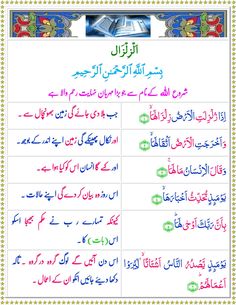 الزلزال
بِسْمِ اللّٰهِ الرَّحْمٰنِ الرَّحِيْمِ
شروع اللہ کے نام سے جو بڑا مہربان نہایت رحم والا ہے
اِذَا زُلْزِلَتِ الْاَرْضُ زِلْزَالَهَا
جب ہلا دی جائے گی زمین بھونچال سے۔
وَاَخْرَجَتِ الْاَرْضُ اَثْقَالَهَا
اور نکال پھینکے گی زمین اپنے اندر کے بوجھ۔
وَقَالَ الْاِنْسَانُ مَا لَهَا
اور کہے گا انسان اس کو کیا ہوا ہے۔
يَوْمَئِذٍ تُحَدِّثُ اَخْبَارَهَا
اس روز وہ بیان کر دے گی اپنے حالات۔
بِاَنَّ رَبَّكَ اَوْحٰى لَهَا
کیونکہ تمہارے رب نے حکم بھیجا اسکو
اس (بات) کا۔
يَوْمَئِذٍ يَّصْدُرُ النَّاسُ اَشْتَاتًا لِّيُرَوْا
اَعْمَالَهُمْ
اس دن آئیں گے لوگ گروہ در گروہ۔ تاکہ
دکھا دیئے جائیں انکو ان کے اعمال۔